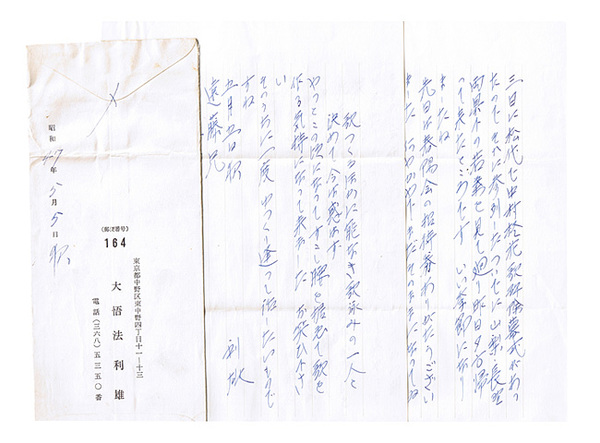 三日に松代で中村柊花歌碑除幕式があつ
たのでそれに参列したついでに山梨、長野
両県下の若葉を見て廻り昨日夕方帰
つて来たところです いい季節になり
ましたね
先日は春陽会の招待券ありがたうござい
ました
歌つくるほかに能なき歌よみの一人と
決めて今は惑はず
やつとこの頃になつてすこし腰を据ゑて歌を
作る気持になつて来ました お笑ひ下さ
い
そのうちに一度ゆつくり逢つて話したいもので
すね
五月五日夜
利雄
遠藤兄
〈郵便番号〉
164
東京都中野区東中野四丁目十一ー十三
大悟法利雄
電話(三六八)五三五〇番
昭和47年5月5日